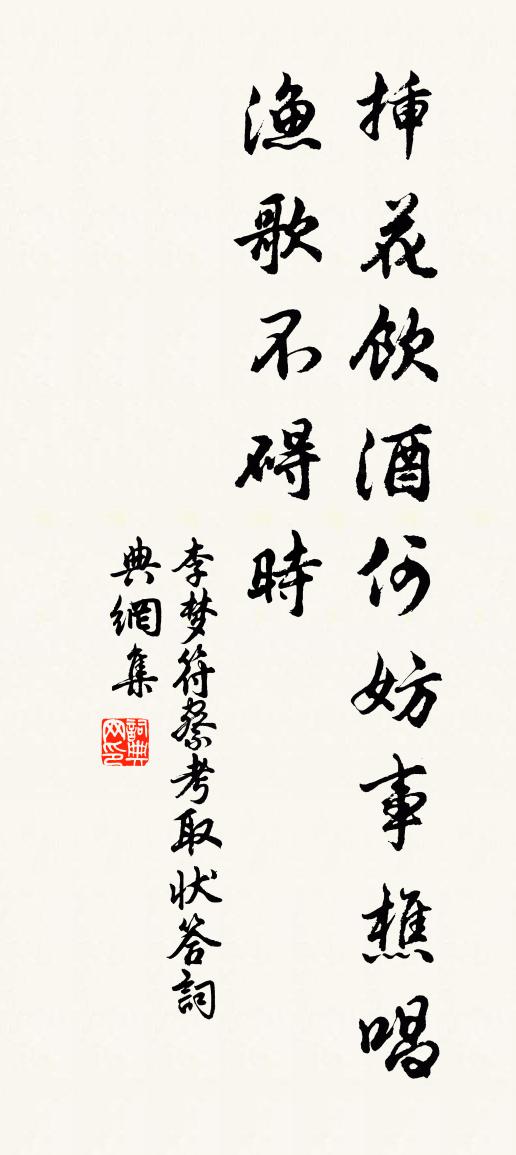 挿花飲酒何妨事樵唱
漁歌不碍時
李梦符察考取状答詞
典網集
詞典网印